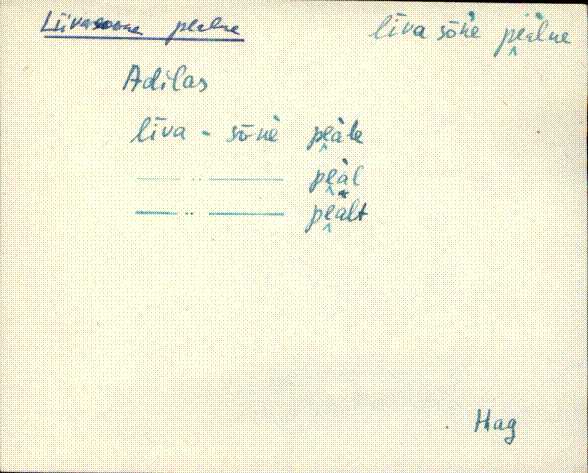 Liivasoone pealne līva sōnè pe̬àlne
Adilas
līva - sōnè pe̬àle
—— ·· —— pe̬àl
—— ·· —— pe̬àlt
Hag